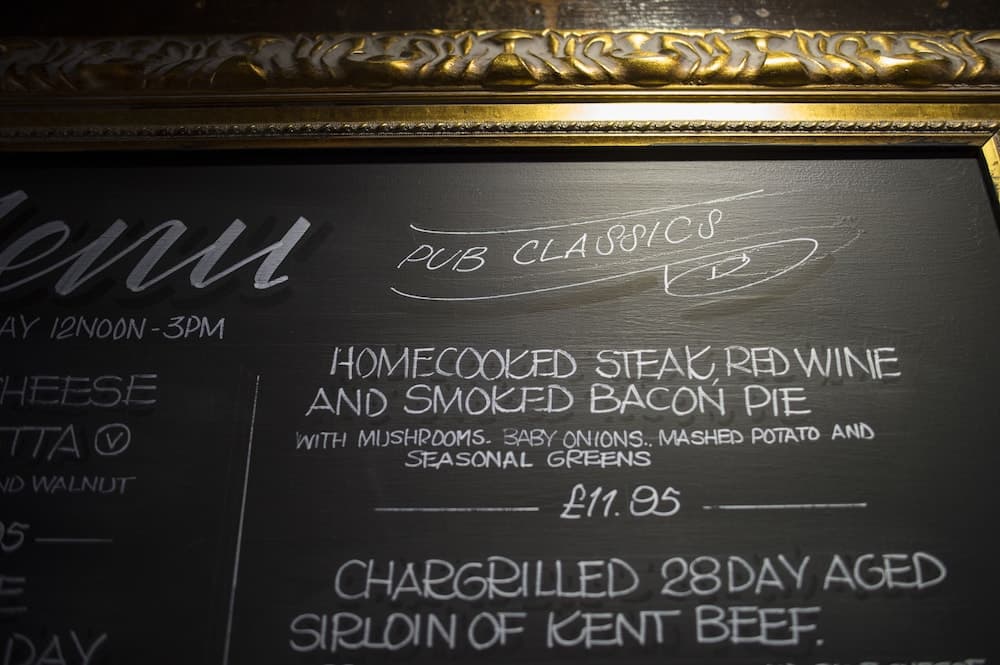 Menu
PUB CLASSICS
AY 12NOON - 3PM
CHEESE
TTA V
ND WALNUT
95
HOMECOOKED STEAK, RED WINE
AND SMOKED BACON PIE
WITH MUSHROOMS. BABY ONIONS.. MASHED POTATO AND
SEASONAL GREENS
£11.95
CHARGRILLED 28 DAY AGED
SIRLOIN OF KENT BEEF.
DAY